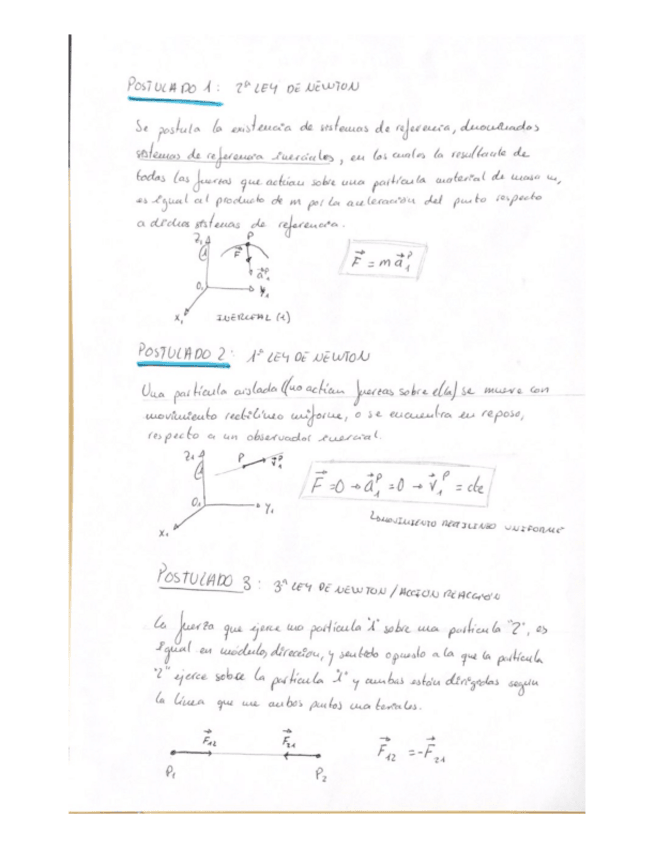 POSTULADO 1: 2ª LEY DE NEWTON
Se postula la existencia de sistemas de referencia, denominados
sistemas de referencia inerciales, en los cuales la resultante de
todas las fuerzas que actúan sobre una partícula material de masa m,
es igual al producto de m por la aceleración del punto respecto
a dichos sistemas de referencia.
Z₁ P
1 F⃗ F⃗ = m a⃗₁ᴾ
a⃗₁ᴾ
O₁ Y₁
X₁ INERCIAL (1)
POSTULADO 2: 1ª LEY DE NEWTON
Una partícula aislada (no actúan fuerzas sobre ella) se mueve con
movimiento rectilíneo uniforme, o se encuentra en reposo,
respecto a un observador inercial.
Z₁ P v⃗₁ᴾ
1 F⃗ = 0 → a⃗₁ᴾ = 0 → v⃗₁ᴾ = cte
O₁ Y₁
X₁ MOVIMIENTO RECTILINEO UNIFORME
POSTULADO 3: 3ª LEY DE NEWTON / ACCION REACCION
La fuerza que ejerce una partícula "1" sobre una partícula "2", es
igual en módulo, dirección, y sentido opuesto a la que la partícula
"2" ejerce sobre la partícula "1" y ambas están dirigidas según
la línea que une ambos puntos materiales.
F⃗₁₂ F⃗₂₁ F⃗₁₂ = -F⃗₂₁
P₁ P₂